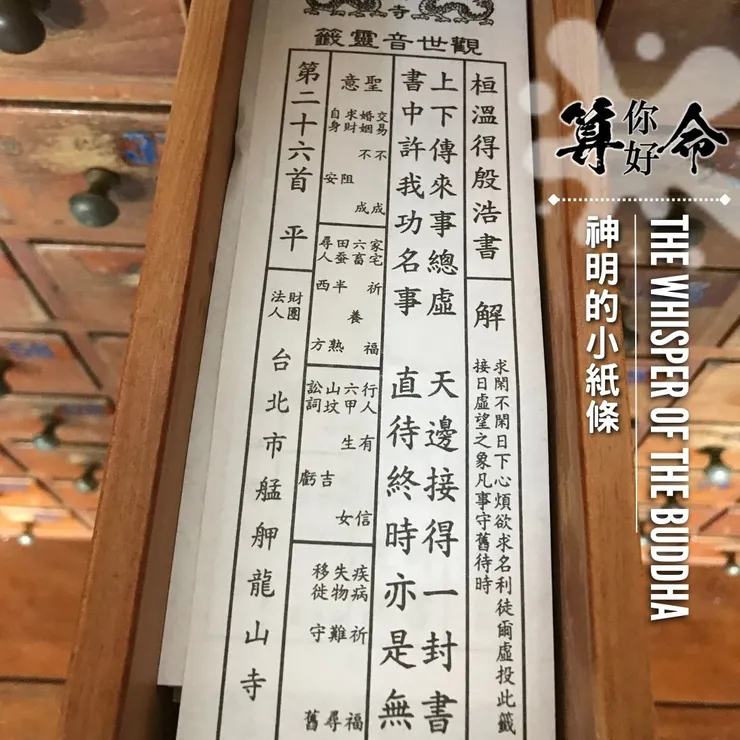 寺
觀世音靈籤
桓溫得殷浩書
解
求閑不閑日下心煩欲求名利徒爾虛投此籤
接日虛望之象凡事守舊待時
上下傳來事總虛 天邊接得一封書
書中許我功名事 直待終時亦是無
聖意
交易不成
婚姻不成
求財阻
自身安
家宅祈福
六畜養
田蚕半熟
尋人西方
行人有信
六甲生女
山墳吉
訟詞虧
疾病祈福
失物難尋
移徙守舊
第二十六首 平
財團法人 台北市艋舺龍山寺
算你好命
THE WHISPER OF THE BUDDHA
神明的小紙條